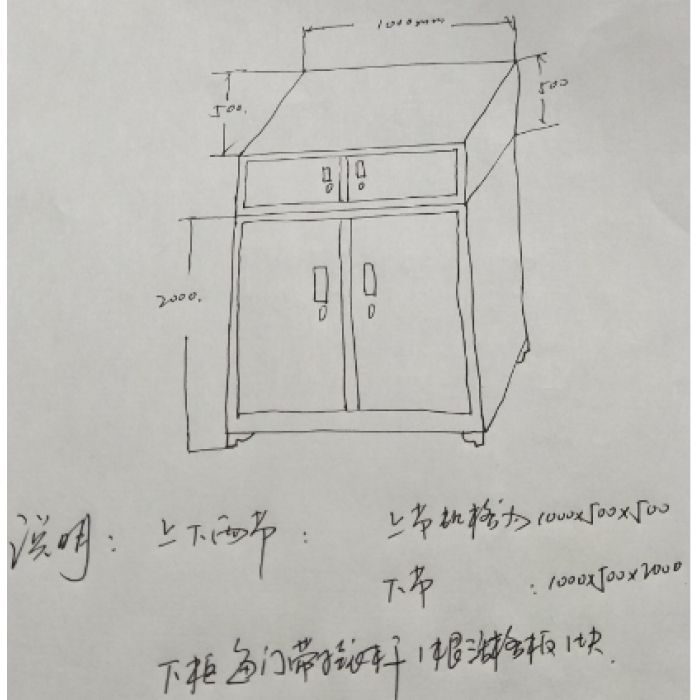 1000mm
500.
500
2000.
说明: 上下两节: 上节规格为1000x500x500
下节 : 1000x500x2000
下柜每门带 杆1根 板1块.